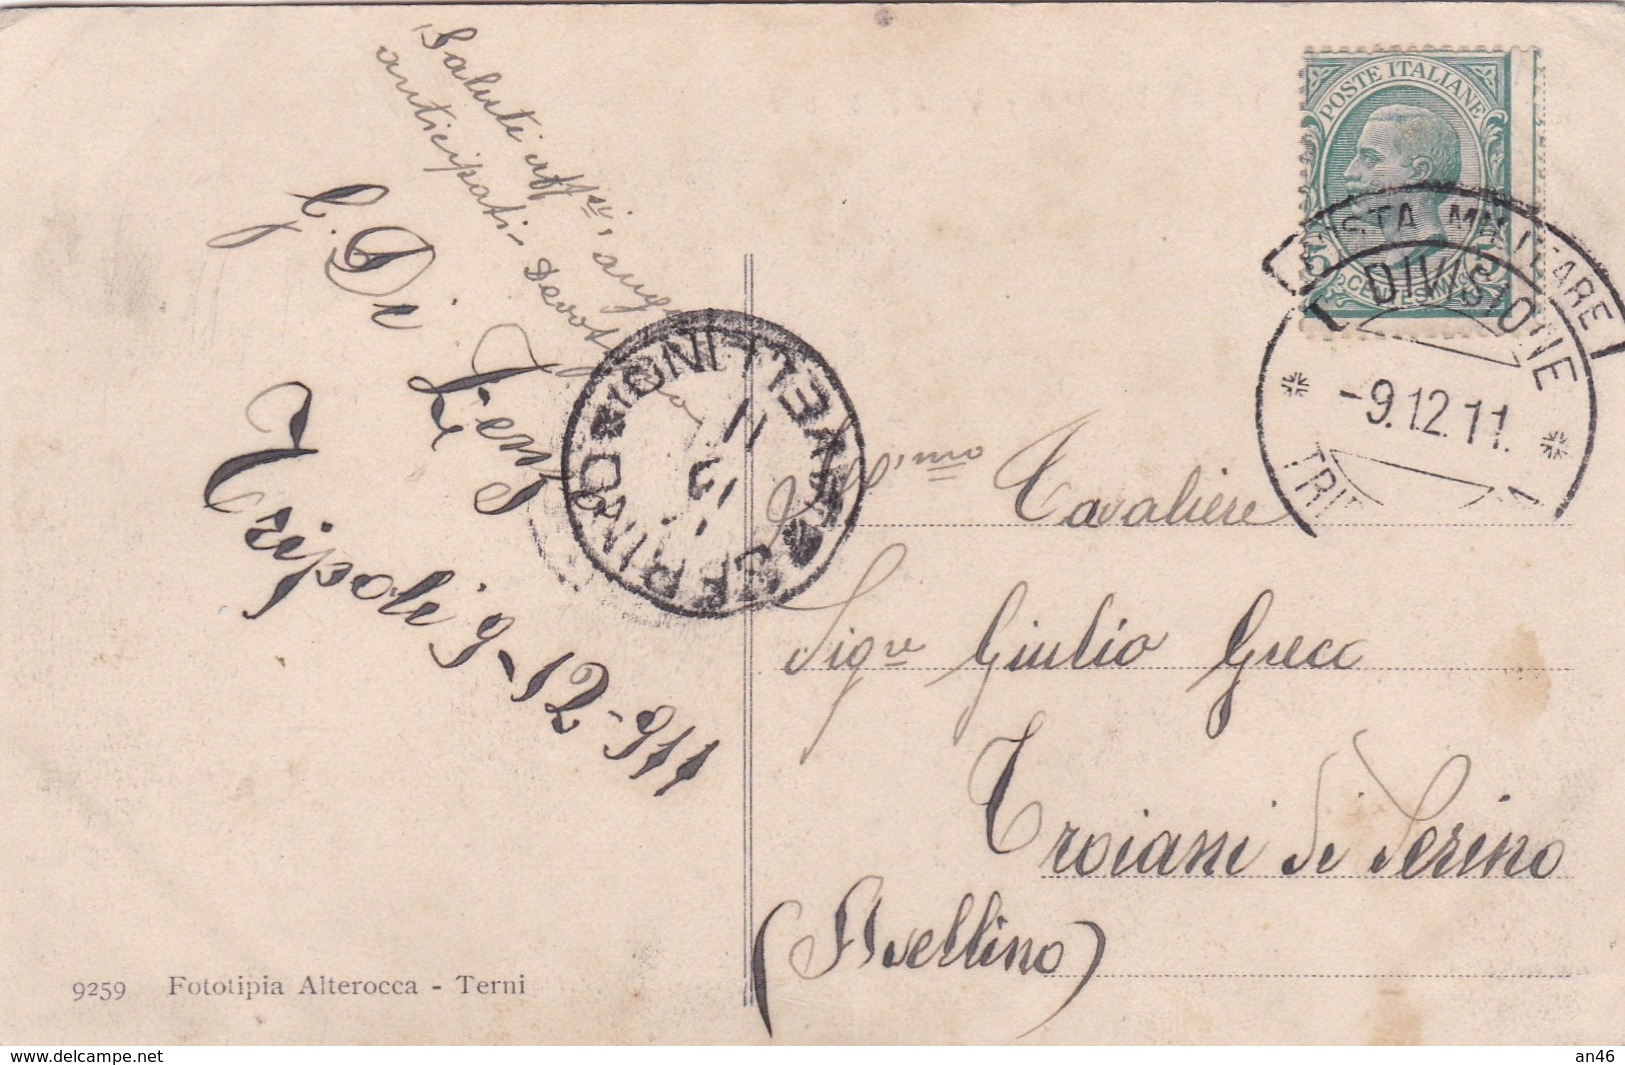 Saluti aff.si, auguri
anticipati - Devotissimo
G. Di Lenz
Tripoli 9-12-911
POSTE ITALIANE
POSTA MILITARE
DIVISIONE
-9.12.11.
TRI
SERINO
AVELLINO
11
Ill'mo Cavaliere
Sigre Giulio Greco
Troiani di Serino
(Avellino)
9259 Fototipia Alterocca - Terni
www.delcampe.net
an46